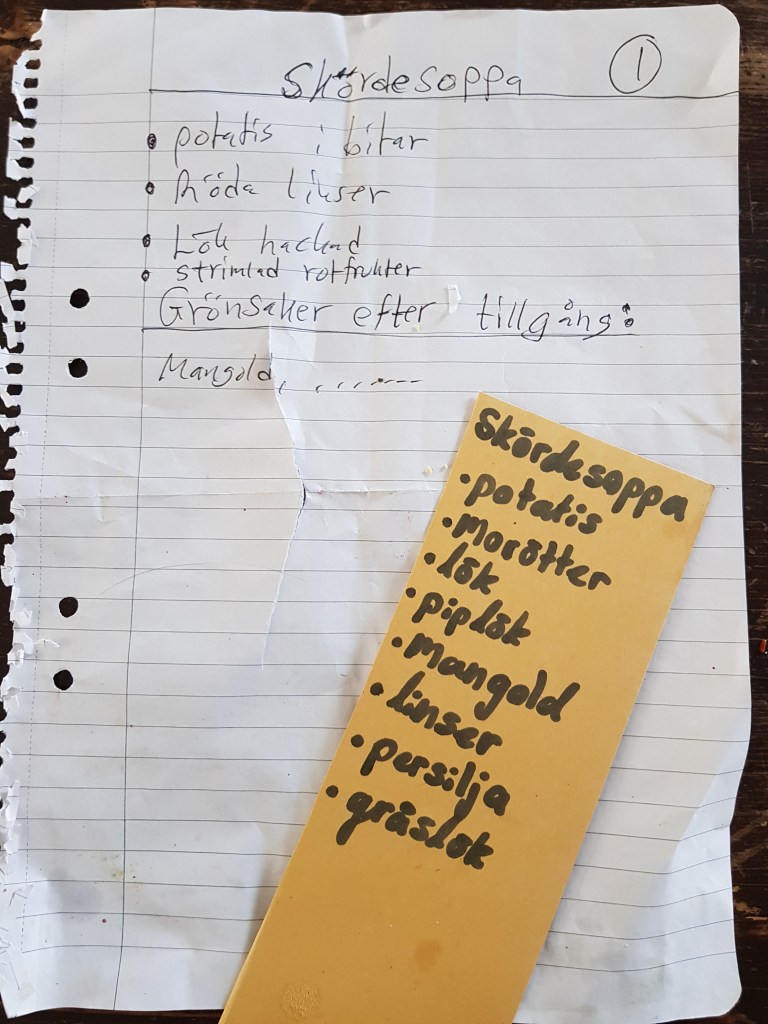 Skördesoppa 1
• potatis i bitar
• Röda linser
• Lök hackad
• strimlad rotfrukter
Grönsaker efter tillgång:
Mangold, , ,,,----
Skördesoppa
• potatis
• Morötter
• lök
• piplök
• Mangold
• linser
• persilja
• gräslök